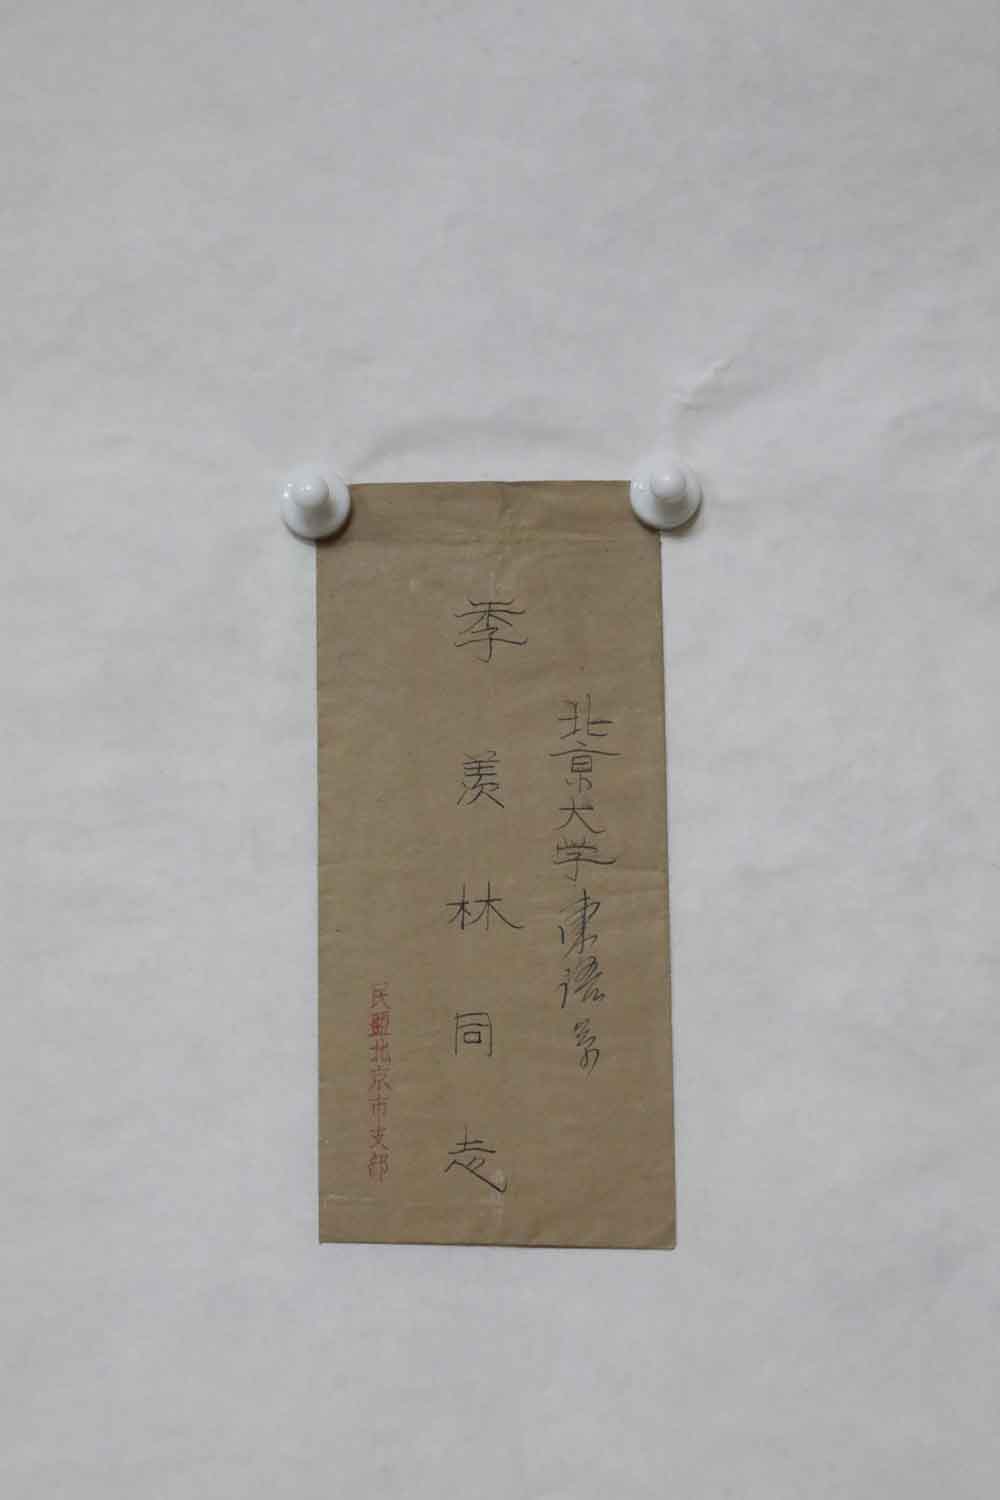 北京大学东语系
季羡林同志
民盟北京市支部